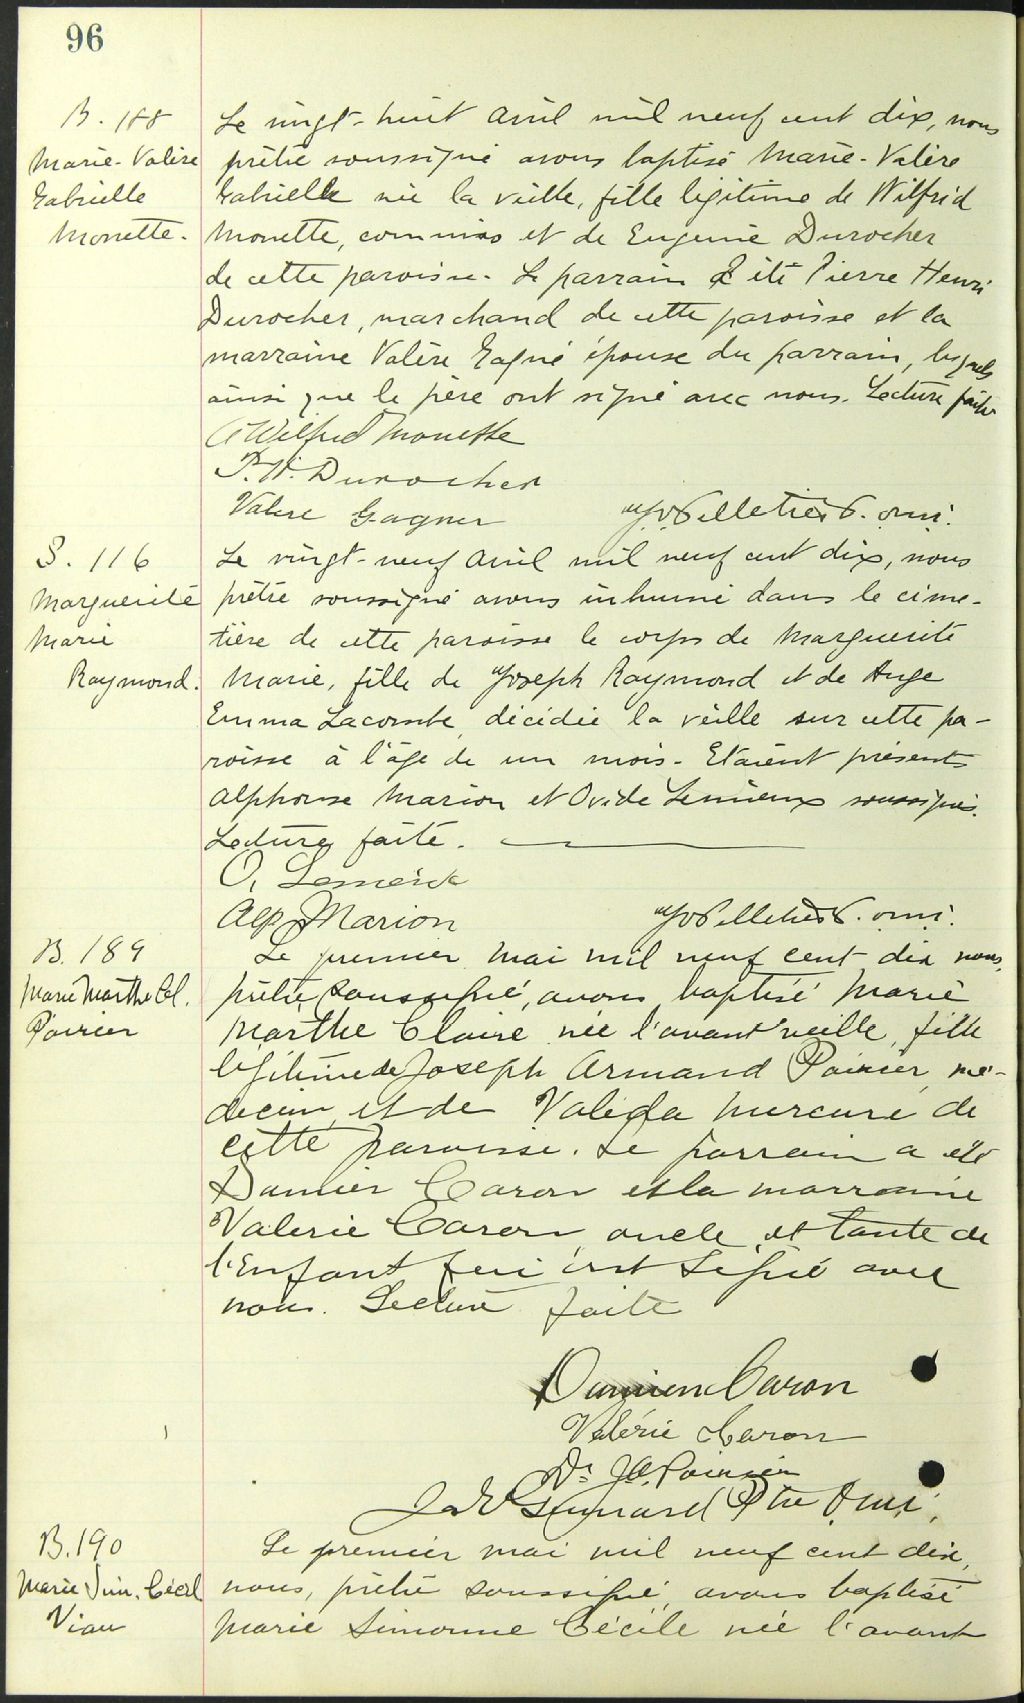 96
B. 188
Marie-Valère
Gabrielle
Monette.
Le vingt-huit avril mil neuf cent dix, nous
prêtre soussigné avons baptisé Marie-Valère
Gabrielle née la veille, fille légitime de Wilfrid
Monette, commis et de Eugenie Durocher
de cette paroisse. Le parrain a été Pierre Henri
Durocher, marchand de cette paroisse et la
marraine Valère Gagné épouse du parrain, lesquels
ainsi que le père ont signé avec nous. Lecture faite
A Wilfrid Monette
P. H. Durocher
Valere Gagner
Jos Pelletier P. o.m.i.
S. 116
Marguerite
Marie
Raymond.
Le vingt-neuf avril mil neuf cent dix, nous
prêtre soussigné avons inhumé dans le cime-
tière de cette paroisse le corps de Marguerite
Marie, fille de Joseph Raymond et de Ange
Emma Lacombe, décédée la veille sur cette pa-
roisse à l'âge de un mois. Etaient présents
Alphonse Marion et Ovide Lemieux soussignés.
Lecture faite.
O. Lemieux
Alp. Marion
Jos Pelletier P. o.m.i.
B. 189
Marie Marthe Cl.
Poirier
Le premier mai mil neuf cent dix nous,
prêtre soussigné, avons baptisé Marie
Marthe Claire née l'avant veille, fille
légitime de Joseph Armand Poirier, mé-
decin, et de Valéda Mercure de
cette paroisse. Le parrain a été
Damien Caron et la marraine
Valerie Caron, oncle et tante de
l'Enfant qui ont signé avec
nous. Lecture faite
Damien Caron
Valérie Caron
Dr J.A. Poirier
Ptre O.m.i.
B. 190
Marie Sim. Cécil
Viau
Le premier mai mil neuf cent dix,
nous, prêtre soussigné, avons baptisé
Marie Simonne Cécile née l'avant